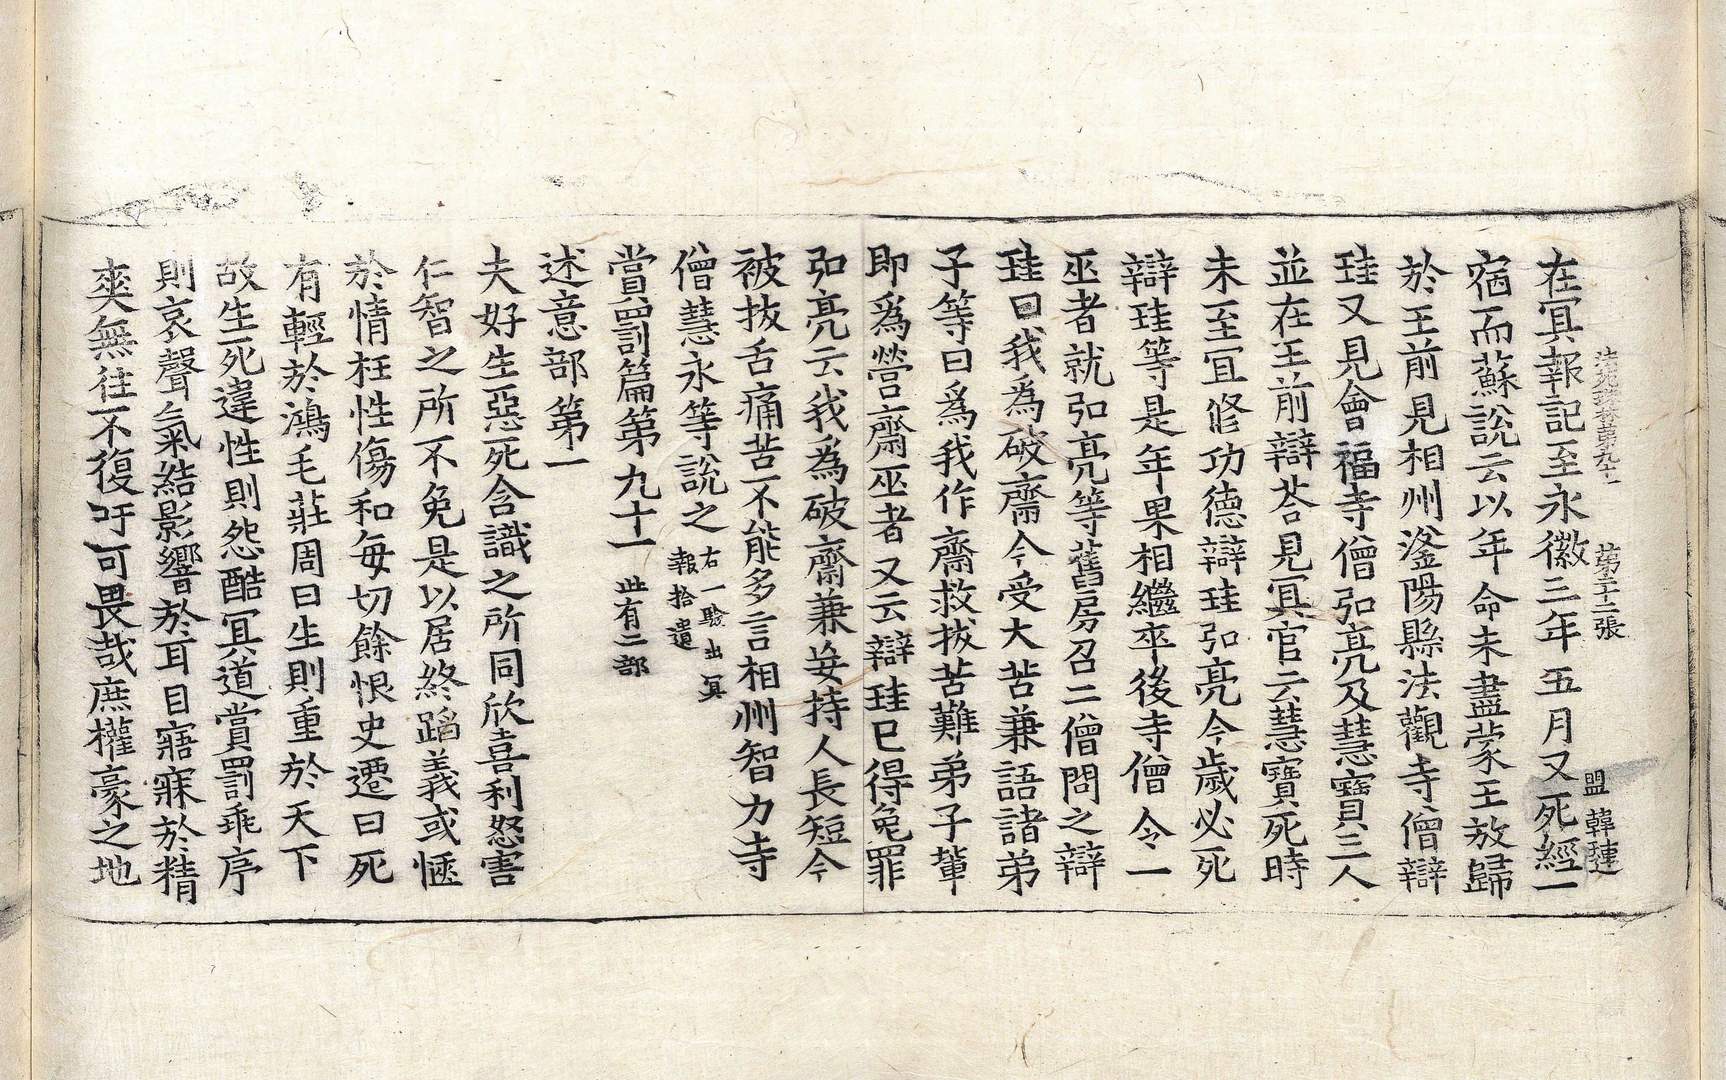 法苑珠林第九十一 第二十二張 盟 韓璉
在冥報記至永徽三年五月又死經一
宿而蘇說云以年命未盡蒙王放歸
於王前見相州滏陽縣法觀寺僧辯
珪又見會福寺僧弘亮及慧寶三人
並在王前辯荅見冥官云慧寶死時
未至宜修功德辯珪弘亮今歲必死
辯珪等是年果相繼卒後寺僧令一
巫者就弘亮等舊房召二僧問之辯
珪曰我為破齋今受大苦兼語諸弟
子等曰為我作齋救拔苦難弟子輩
即為營齋巫者又云辯珪已得免罪
弘亮云我為破齋兼妄持人長短今
被拔舌痛苦不能多言相州智力寺
僧慧永等說之右一驗出冥報拾遺
賞罰篇第九十一此有二部
述意部第一
夫好生惡死含識之所同欣喜利怒害
仁智之所不免是以居終蹈義或愜
於情枉性傷和每切餘恨史遷曰死
有輕於鴻毛莊周曰生則重於天下
故生死違性則怨酷冥道賞罰乖序
則哀聲氣結影響於耳目寤寐於精
爽無往不復吁可畏哉庶權豪之地